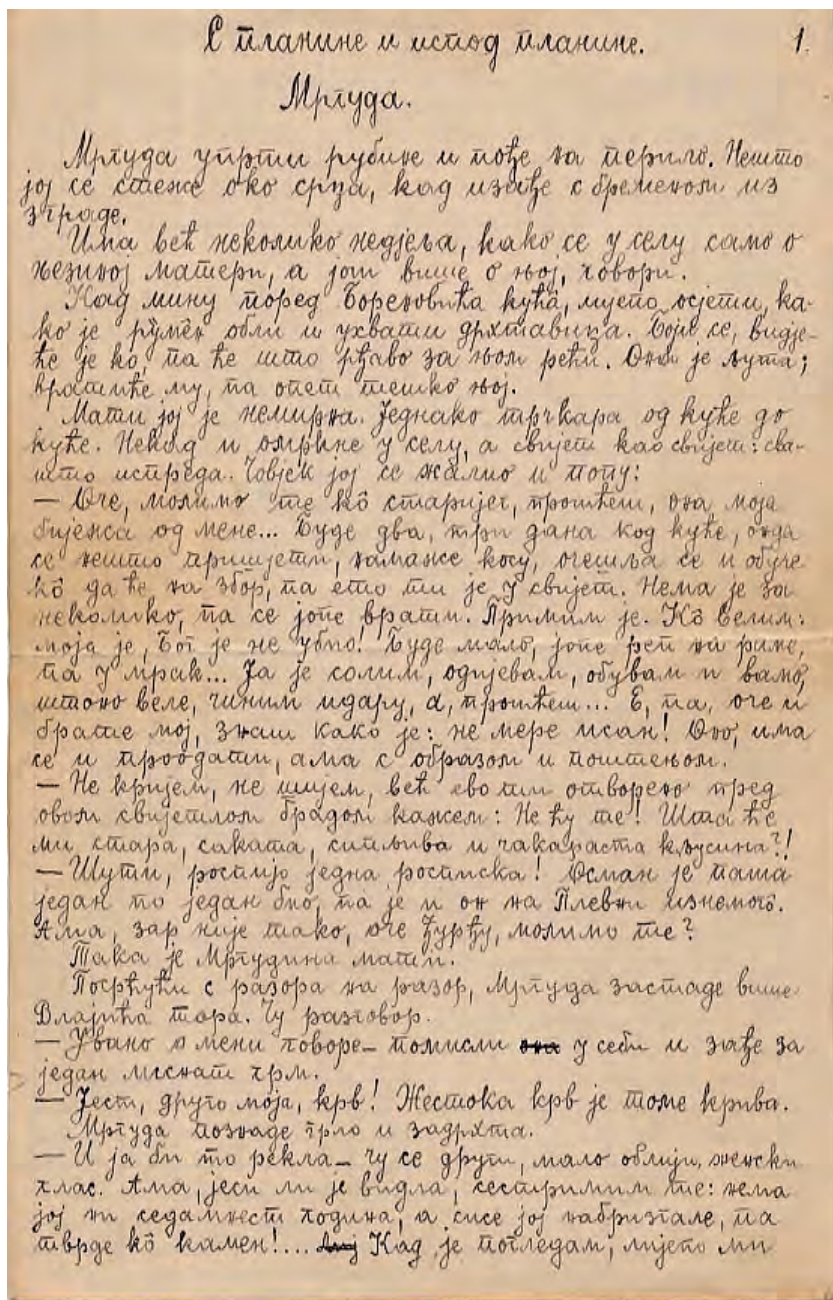 С планине и испод планине. 1.
Мргуда.
Мргуда упрти рубине и пође на перило. Нешто
јој се стеже око срца, кад изиђе с бременом из
зграде.
Има већ неколико недјеља, како се у селу само о
њезиној матери, а још више о њој, говори.
Кад мину поред Бореновића кућа, лијепо осјети, ка-
ко је румен обли и ухвати дрхтавица. Боји се, видје-
ће је ко, па ће што рђаво за њом рећи. Она је љута;
вратиће му, па опет тешко њој.
Мати јој је немирна. Једнако трчкара од куће до
куће. Некад и омркне у селу, а свијет као свијет: сва-
што испреда. Човјек јој се жалио и попу:
— Оче, молимо те кô старијег, прошћеш, она моја
бијежса од мене... Буде два, три дана код куће, онда
се нешто пришјети, намаже косу, очешља се и обуче
кô да ће на збор, па ето ти је у свијет. Нема је за
неколико, па се јопе врати. Примим је. Кô велим:
моја је, Бог је не убио! Буде мало, јопе реп на раме,
па у мрак... Ја је солим, одијевам, обувам и вамо,
штоно веле, чиним идару, а, прошћеш... Е, па, оче и
брате мој, знаш како је: не мере исан! Оно, има
се и проодати, ама с образом и поштењом.
— Не кријем, не шијем, већ ево ти отворено пред
овом свијетлом брадом кажем: Не ћу те! Шта ће
ми стара, саката, сипљива и чакараста кљусина?!
— Шути, роспијо једна росписка! Осман је паша
један по један био, па је и он на Плевни изнемогô.
Ама, зар није тако, оче Ђурђу, молимо те?
Така је Мргудина мати.
Посрћући с разора на разор, Мргуда застаде више
Влајића тора. Чу разговор.
— Увано о мени говоре — помисли она у себи и зађе за
један лиснат грм.
— Јест, друго моја, крв! Жестока крв је томе крива.
Мргуда познаде грло и задрхта.
— И ја би то рекла — чу се други, мало облији, женски
глас. Ама, јеси ли је видла, сестримим те: нема
јој ни седамнест година, а сисе јој набризгале, па
тврде кô камен!... Кад је погледам, лијепо ми